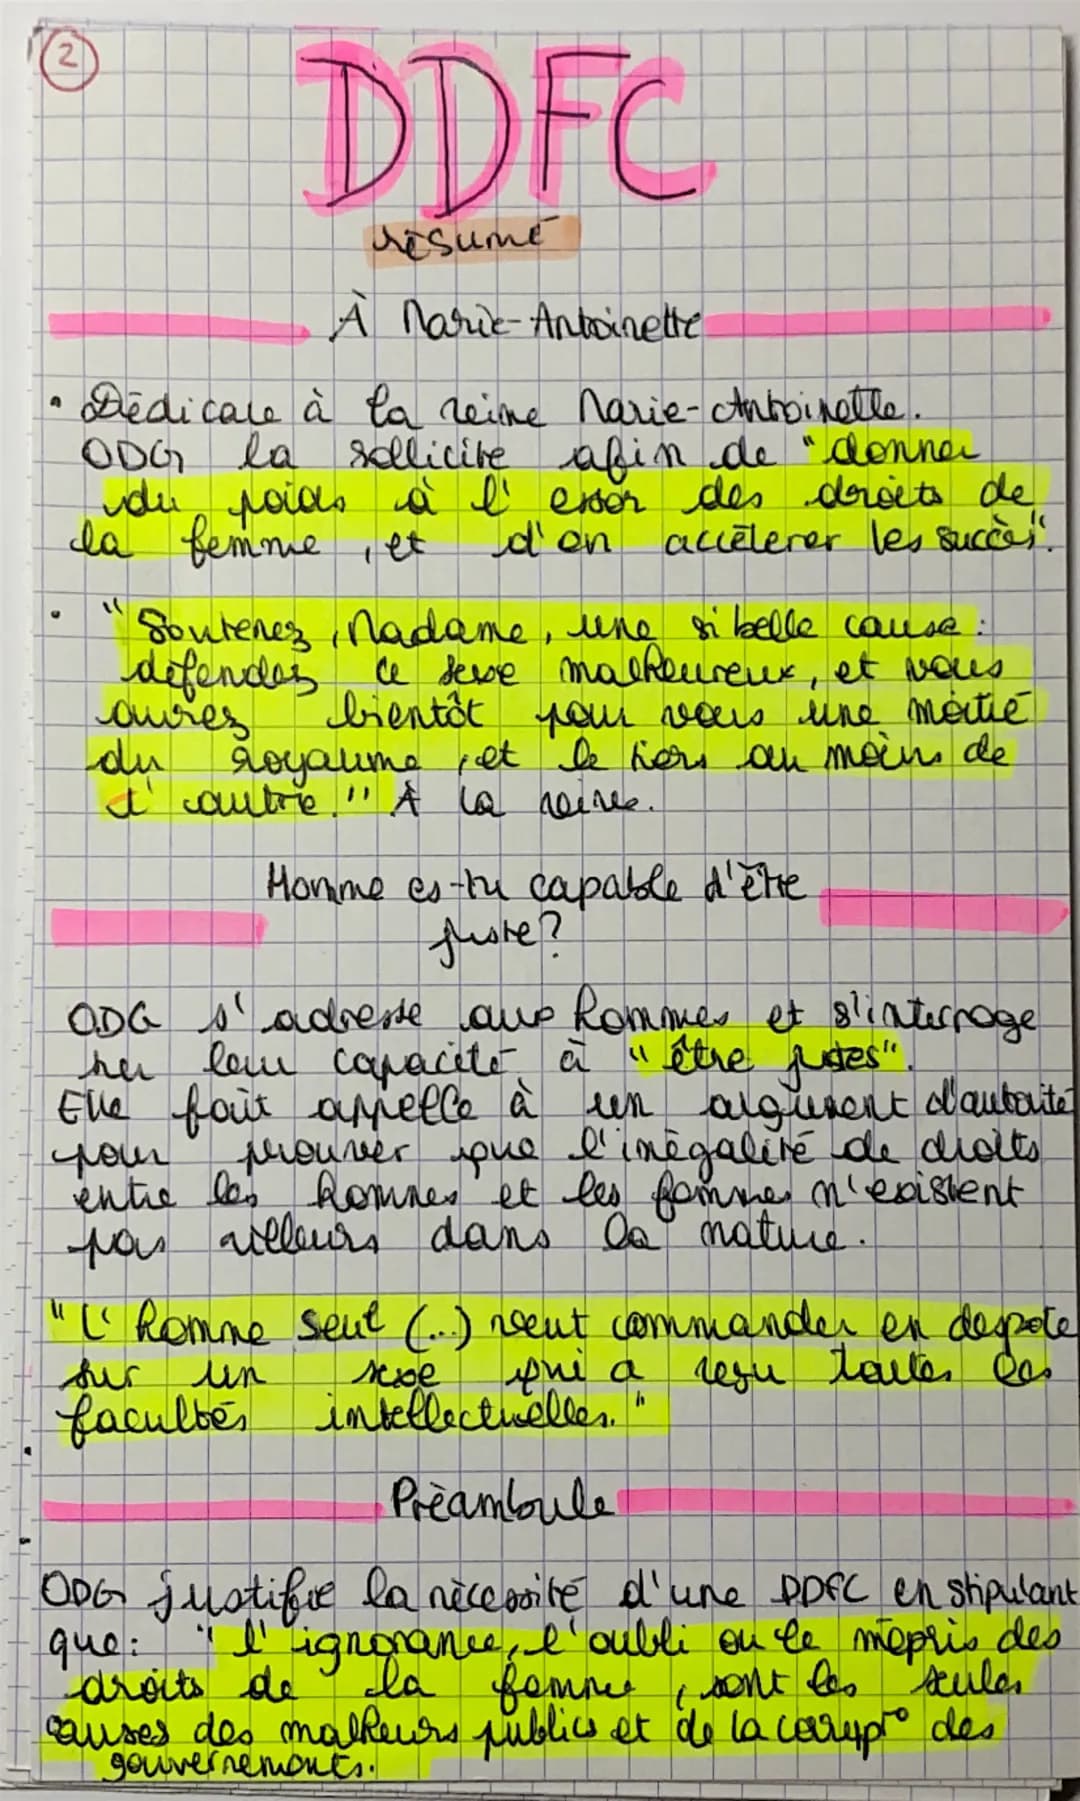 2
DDFC
résumé
À Marie-Antoinette
• Dédicace à la reine Marie-Antoinette.
ODG la sollicite afin de "donner
du poids à l'essor des droits de
la femme, et d'en accélerer les succès".
• "Soutenez, Madame, une si belle cause :
défendez ce sexe malheureux, et vous
aurez bientôt pour vous une moitié
du royaume, et le tiers au moins de
l'autre." À la reine.
Homme es-tu capable d'être
juste?
ODG s'adresse aux hommes et s'interroge
sur leur capacité à "être justes".
Elle fait appelle à un argument d'autorité
pour prouver que l'inégalité de droits
entre les hommes et les femmes n'existent
pas ailleurs dans la nature.
"L'homme seul (...) veut commander en despote
sur un sexe qui a reçu toutes les
facultés intellectuelles."
Préamboule
ODG justifie la nécessité d'une DDFC en stipulant
que: "l'ignorance, l'oubli ou le mépris des
droits de la femme, sont les seules
causes des malheurs publics et de la corrup° des
gouvernements.